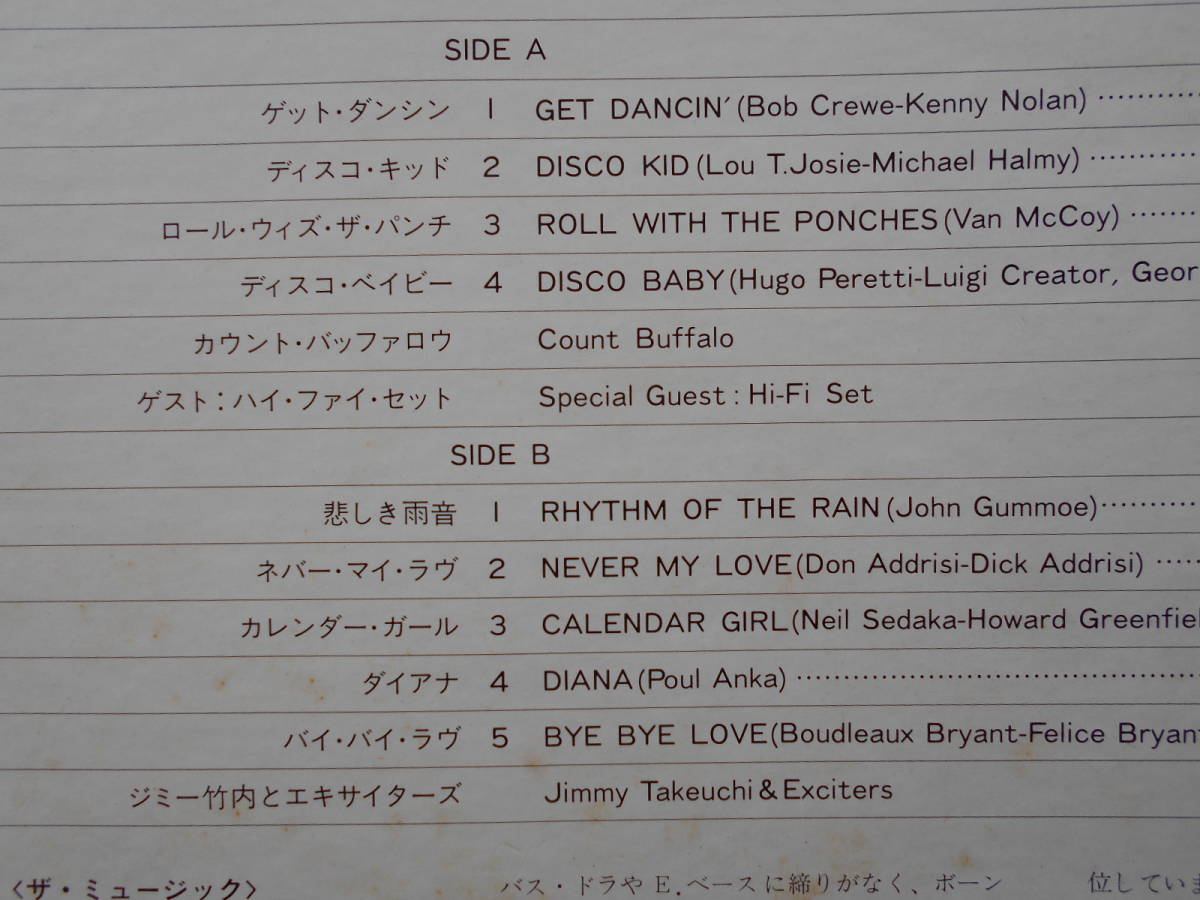 SIDE A
ゲット・ダンシン 1 GET DANCIN' (Bob Crewe-Kenny Nolan) ············
ディスコ・キッド 2 DISCO KID (Lou T.Josie-Michael Halmy) ············
ロール・ウィズ・ザ・パンチ 3 ROLL WITH THE PONCHES (Van McCoy) ········
ディスコ・ベイビー 4 DISCO BABY (Hugo Peretti-Luigi Creator, Geor
カウント・バッファロウ Count Buffalo
ゲスト：ハイ・ファイ・セット Special Guest : Hi-Fi Set
SIDE B
悲しき雨音 1 RHYTHM OF THE RAIN (John Gummoe) ············
ネバー・マイ・ラヴ 2 NEVER MY LOVE (Don Addrisi-Dick Addrisi) ·····
カレンダー・ガール 3 CALENDAR GIRL (Neil Sedaka-Howard Greenfiel
ダイアナ 4 DIANA (Poul Anka) ············
バイ・バイ・ラヴ 5 BYE BYE LOVE (Boudleaux Bryant-Felice Bryant
ジミー竹内とエキサイターズ Jimmy Takeuchi & Exciters
〈ザ・ミュージック〉 バス・ドラや E.ベースに締りがなく、ボーン 位していま